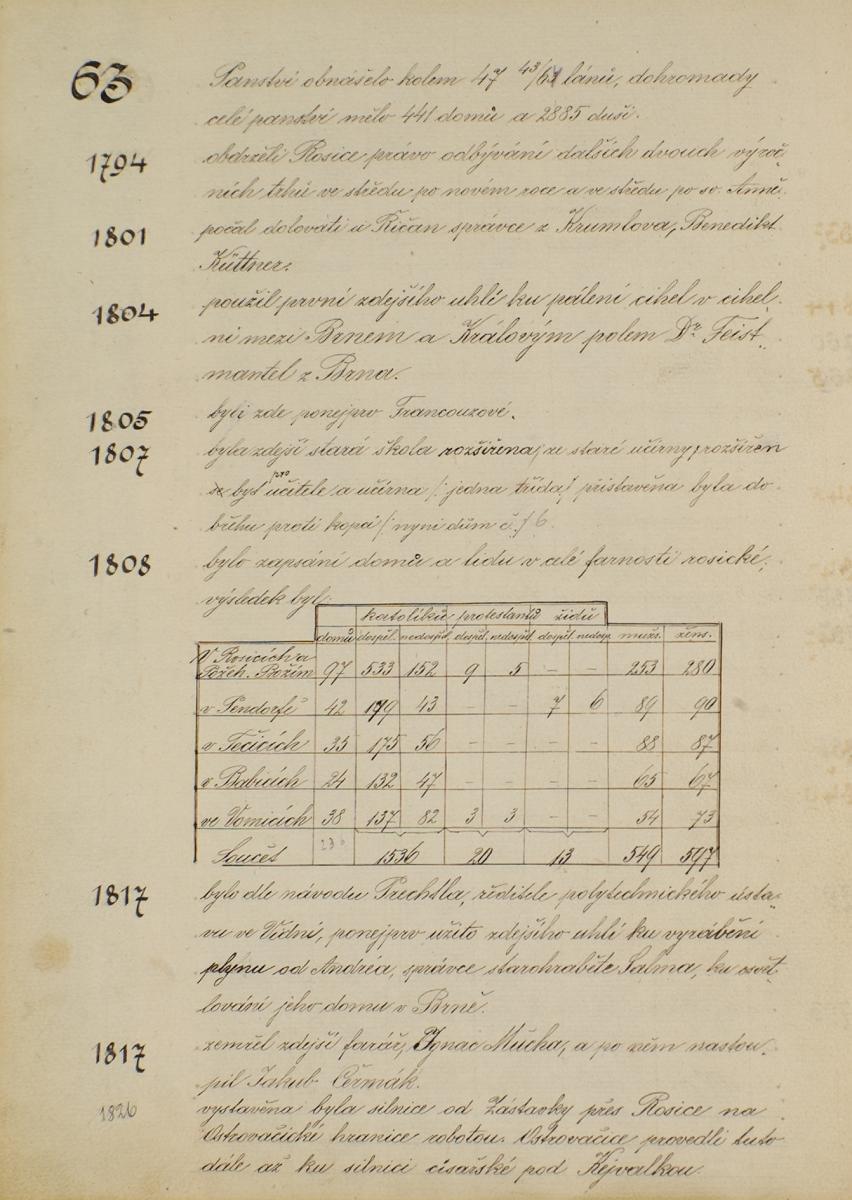 63
Panství obnášelo kolem 47 43/64 lánů, dohromady
celé panství mělo 441 domů a 2885 duší.
1794 obdrželi Rosice právo odbývání dalších dvouch výroč-
ních trhů ve středu po novém roce a ve středu po sv. Anně.
1801 počal dolovati u Říčan správce z Krumlova, Benedikt
Küttner.
1804 použil první zdejšího uhlí ku pálení cihel v cihel-
ni mezi Brnem a Královým polem Dr. Feist-
mantel z Brna.
1805 byli zde ponejprv Francouzové.
1807 byla zdejší stará škola rozšířena, ze staré učírny rozšířen
byt pro učitele a učírna /: jedna třída :/ přistavěna byla do
břehu proti kopci /: nyní dům č. 6.
1808 bylo zapsání domů a lidu v celé farnosti rosické,
výsledek byl:
katolíků protestantů židů
domů dospěl. nedospěl. dospěl. nedospěl. dospěl. nedosp. mužs. žens.
V Rosicích a
97 533 152 9 5 – – 253 280
v Pendorfě 42 179 43 – – 7 6 89 90
v Tečicích 35 175 56 – – – – 88 87
v Babicích 24 132 47 – – – – 65 67
ve Vomicích 38 137 82 3 3 – – 54 73
Součet 23 1536 20 13 549 597
1817 bylo dle návodu Prechtla, ředitele polytechnického ústa-
vu ve Vídni, ponejprv užito zdejšího uhlí ku vyrábění
plynu od Andréa, správce starohraběte Salma, ku osvět-
lování jeho domu v Brně.
1817 zemřel zdejší farář, Ignac Mucha, a po něm nastou-
pil Jakub Čermák.
1826 vystavěna byla silnice od Zástavky přes Rosice na
Ostrovačické hranice robotou. Ostrovačice provedli tuto
dále až ku silnici císařské pod Kejvalkou.